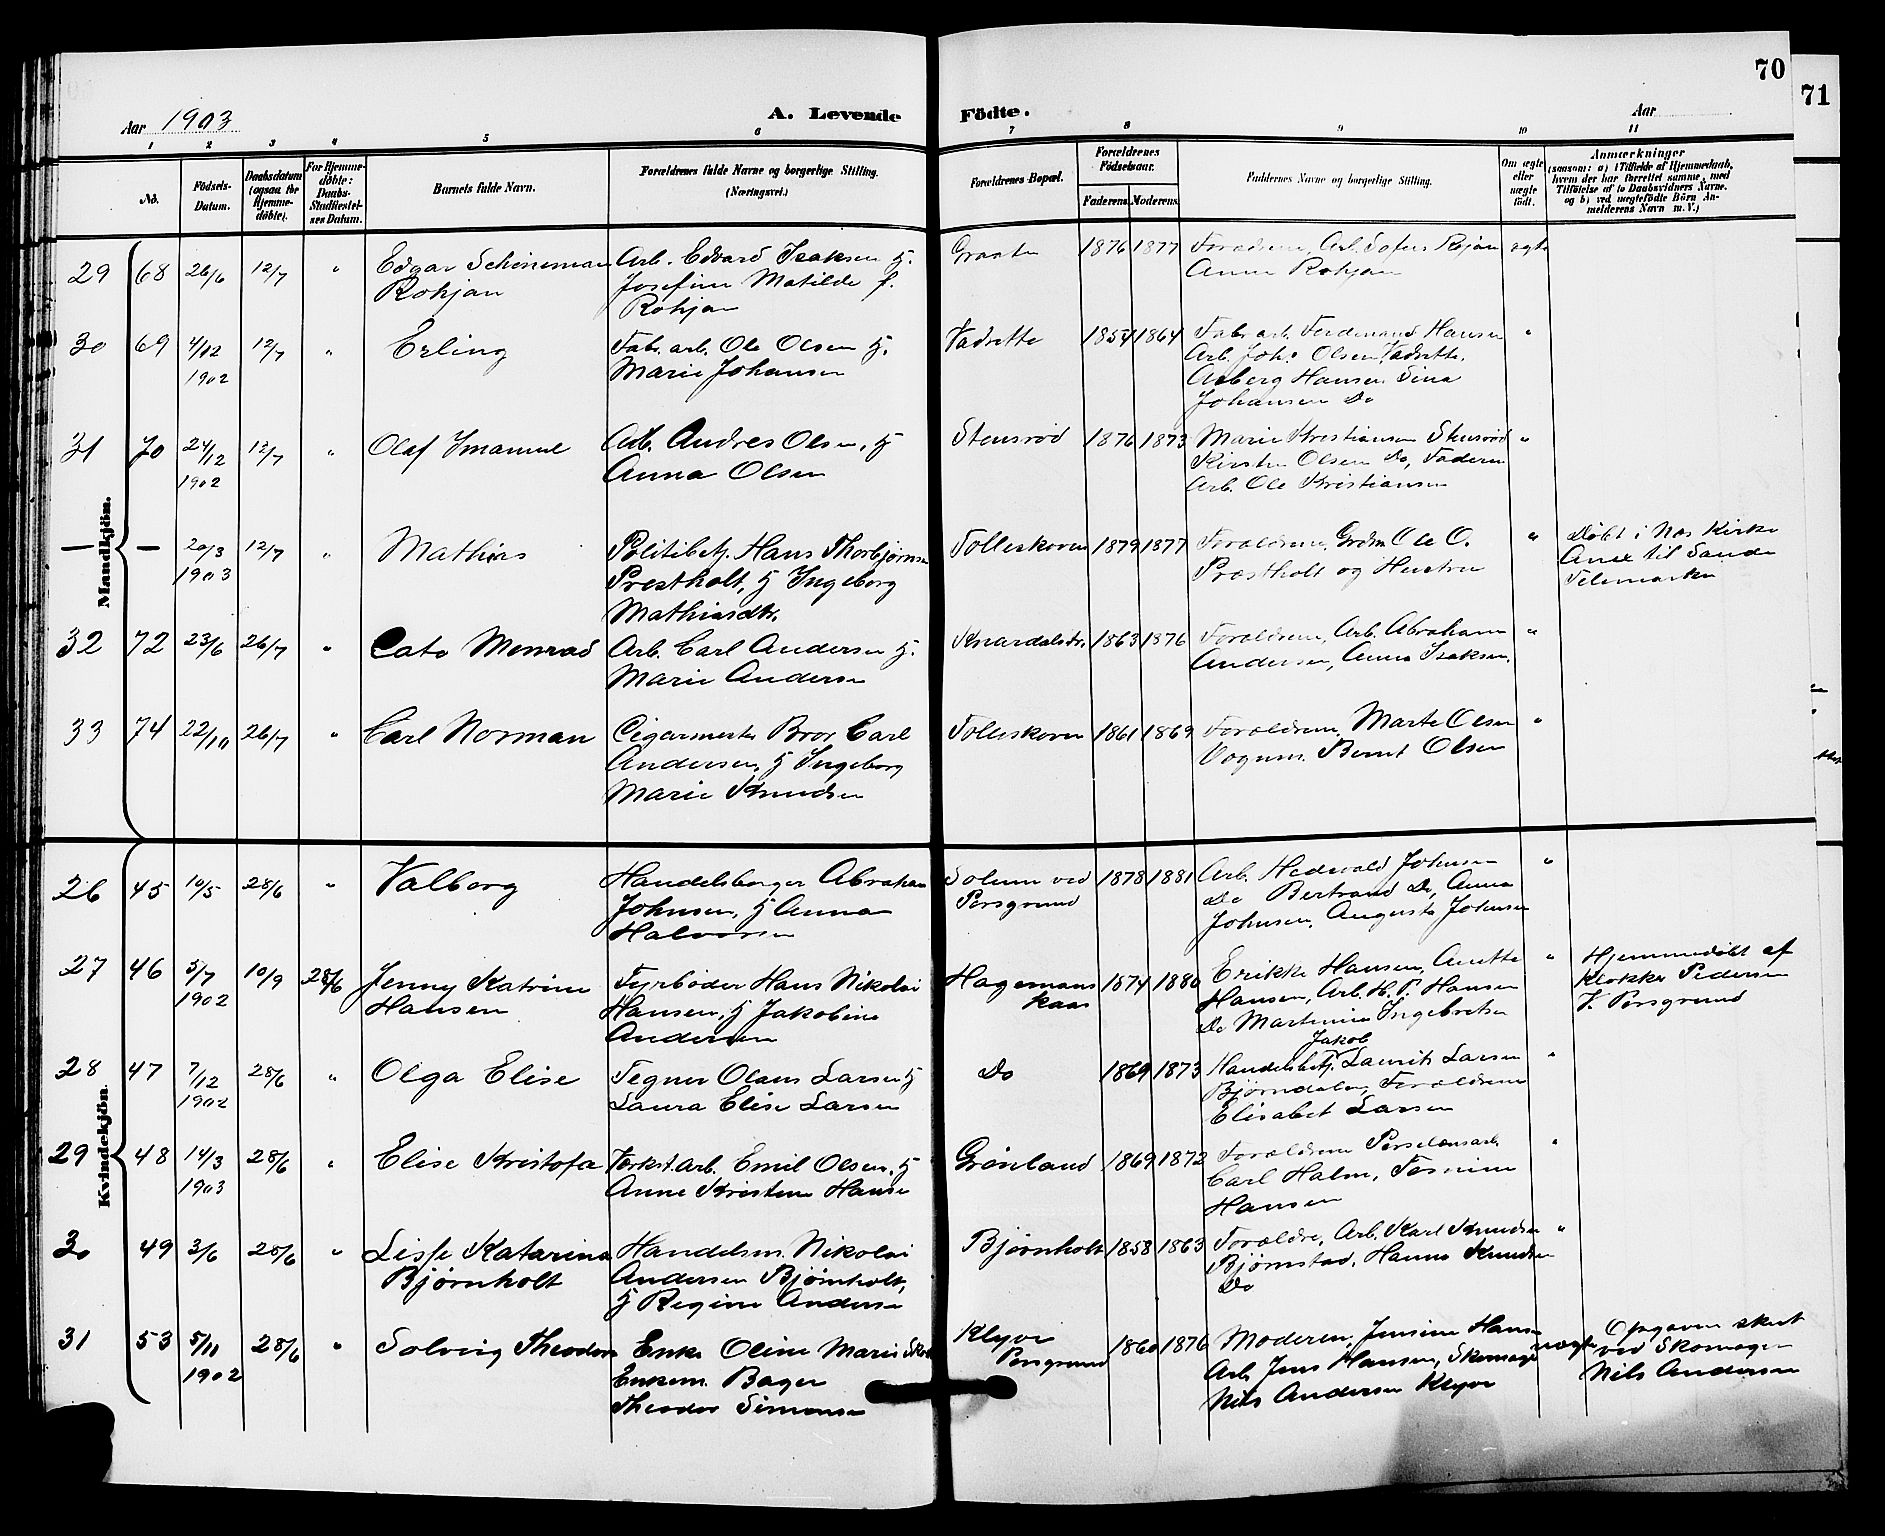 70
71
Aar 1903
A. Levende Födte.
Aar
1 2 3 4 5 6 7 8 9 10 11
No.
Födsels-Datum.
Daabsdatum (ogsaa for Hjemme-döbte).
For Hjemme-döbte: Daabs-Stadfæstel-ses Datum.
Barnets fulde Navn.
Forældrenes fulde Navne og borgerlige Stilling.
(Næringsvei.)
Forældrenes Bopæl.
Forældrenes Födselsaar.
Faderens. Moderens.
Faddernes Navne og borgerlige Stilling.
Om ægte eller uægte födt.
Anmærkninger
(saasom: a) i Tilfælde af Hjemmedaab,
hvem der har forrettet samme, med
Tilföielse af to Daabsvidners Navne.
og b) ved uægtefödte Börn An-
melderens Navn m. V.)
Mandkjön.
29 68 26/6 12/7 " Edgar Schöneman Arb. Edvard Isaksen H. Graaten 1876 1877 Forældrene, Arb. Sofus Rojan ægte
Rohjan Josefine Matilde f. Anna Rohjan
Rohjan
30 69 4/12 12/7 " Erling Fabr. arb. Ole Olsen H. Vadrette 1854 1864 Fabr. arb. Ferdinand Hansen "
1902 Marie Johansen Arb. Joh. Olsen Vadrette.
Aaberg Hansen. Sina
Johansen Do
31 70 24/12 12/7 " Olaf Imanuel Arb. Andres Olsen, H Stensrød 1876 1873 Marie Kristiansen Stensrød "
1902 Anna Olsen Kirsten Olsen Do, Faderen
Arb. Ole Kristiansen
— — 20/3 12/7 " Mathias Politibetj. Hans Thorbjørnsen Tolleskoven 1879 1877 Forældrene, Grdm. Ole O. " Døbt i Nes Kirke
1903 Prestholt, H Ingeborg Præstholt og Hustru Anex til Sande
Mathiasdtr. Telemarken
32 72 23/6 26/7 " Cato Menrad Arb. Carl Andersen H. Knardalstr. 1863 1876 Forældrene, Arb. Abraham "
Marie Andersen Andersen, Anna Isaksen.
33 74 22/10 26/7 " Carl Norman Cigarmester Bror Carl Tolleskoven 1861 1869 Forældrene, Marte Olsen "
Andersen, H Ingeborg Vognm. Bernt Olsen
Marie Knudsen
Kvindekjön.
26 45 10/5 28/6 " Valborg Handelsborger Abraham Solum ved 1878 1881 Arb. Hedevald Johnsen "
Johnsen, H Anna Porsgrund Do Bertrand Do, Anna
Halvorsen Johnsen, Augusta Johnsen
27 46 5/7 10/9 28/6 Jenny Katrine Fyrbøder Hans Nikolai Hagemans 1874 1880 Erikke Hansen, Anette " Hjemmedøbt af
1902 Hansen Hansen, H Jakobine kaas Hansen, Arb. H. P. Hansen Klokker Pedersen
Andersen Do Martinius Ingebretsen V. Porsgrund
Jakob
28 47 7/12 28/6 " Olga Elise Tegner Olaus Larsen H Do 1869 1873 Handelsbetj. Laurits Larsen "
1902 Laura Elise Larsen Bjørndalen, Forældrene
Elisabet Larsen
29 48 14/3 28/6 " Elise Kristofa Værkst. arb. Emil Olsen, H Grønland 1869 1872 Forældrene Porselænsarb. "
1903 Anne Kristine Hansen Carl Halm,
Hansen
30 49 3/6 28/6 " Lisse Katarina Handelsm. Nikolai Bjørnholt 1858 1863 Forældre, Arb. Karl Knudsen "
Bjørnholt Andersen Bjørnholt, Bjørnstad, Hanna Knudsen
H Regine Andersen Do
31 53 5/11 28/6 " Solveig Theodora Enke Oline Marie Klyve 1860 1876 Moderen, Jensine Hansen uægte Opgaven skeet
1902 Enkem. Bager Porsgrund Arb. Jens Hansen, Skomager ved Skomager
Theodor Simonsen Nils Andersen Klyve Nils Andersen